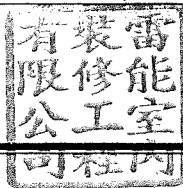 雷能室内
装修工程
有限公司